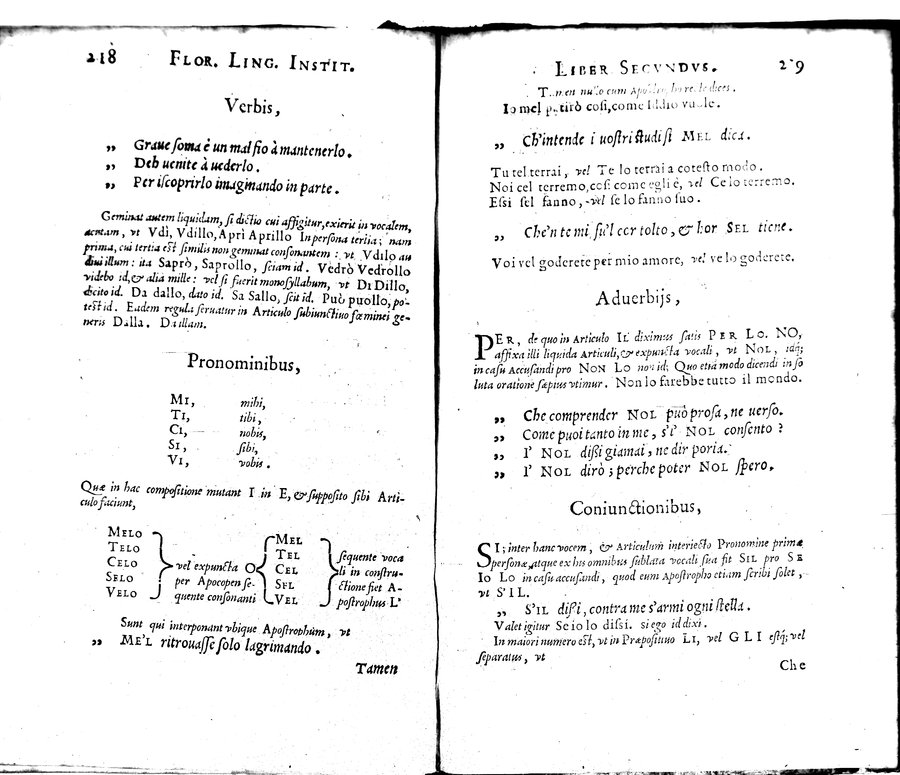 218 FLOR. LING. INSTIT.
Verbis,
„ Graue soma è un mal fio à mantenerlo.
„ Deh uenite à uederlo.
„ Per iscoprirlo imaginando in parte.
Geminat autem liquidam, si dictio cui affigitur, exierit in vocalem,
acutam, vt Vdì, Vdillo, Aprì Aprillo In persona tertia; nam
prima, cui tertia est similis non geminat consonantem: vt Vdilo au
diui illum: ita Saprò, Saprollo, sciam id. Vedrò Vedrollo
videbo id, & alia mille: vel si fuerit monosyllabum, vt Dì Dillo,
dicito id. Da dallo, dato id. Sa Sallo, scit id. Può puollo, po-
test id. Eadem regula seruatur in Articulo subiunctiuo fœminei ge-
neris Dalla. Da illam.
Pronominibus,
MI, mihi,
TI, tibi,
CI, nobis,
SI, sibi,
VI, vobis.
Quæ in hac compositione mutant I in E, & supposito sibi Arti-
culo faciunt,
MELO
TELO
CELO
SELO
VELO
vel expuncta O
per Apocopen se-
quente consonanti
MEL
TEL
CEL
SEL
VEL
sequente voca
li in constru-
ctione fiet A-
postrophus L'
Sunt qui interponant vbique Apostrophum, vt
„ ME'L ritrouasse solo lagrimando.
Tamen
LIBER SECVNDVS. 219
Tamen nullo cum Apostropho recte dices.
Io mel patirò così, come Iddio vuole.
„ Ch'intende i uostri studi si MEL dica.
Tu tel terrai, vel Te lo terrai a cotesto modo.
Noi cel terremo, così come egli è, vel Ce lo terremo.
Essi sel fanno, vel se lo fanno suo.
„ Che'n te mi fu'l cor tolto, & hor SEL tiene.
Voi vel goderete per mio amore, vel ve lo goderete.
Aduerbijs,
PER, de quo in Articulo IL diximus satis PER LO. NO,
affixa illi liquida Articuli, & expuncta vocali, vt NOL, idq;
in casu Accusandi pro NON LO non id; Quo etiã modo dicendi in so
luta oratione sæpius vtimur. Non lo farebbe tutto il mondo.
„ Che comprender NOL può prosa, ne uerso.
„ Come puoi tanto in me, s'i' NOL consento?
„ I' NOL dissi giamai, ne dir poria.
„ I' NOL dirò; perche poter NOL spero.
Coniunctionibus,
SI; inter hanc vocem, & Articulum interiecto Pronomine primæ
personæ, atque ex his omnibus sublata vocali sua fit SIL pro SE
Io LO in casu accusandi, quod cum Apostropho etiam scribi solet,
vt S'IL.
„ S'IL dissi, contra me s'armi ogni stella.
Valet igitur Se io lo dissi. si ego id dixi.
In maiori numero est, vt in Præpositiuo LI, vel GLI estq; vel
separatus, vt
Che